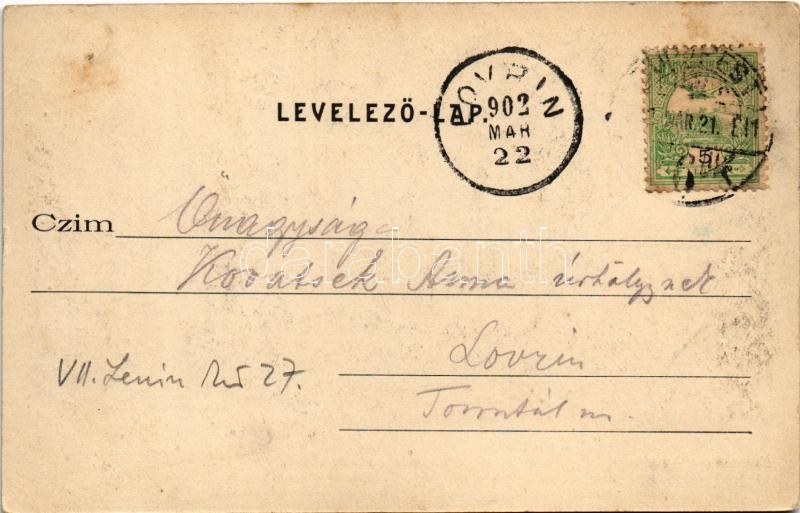 LEVELEZŐ-LAP.
LOVRIN
902
MAR
22
MAR. 21.
5
Czim
Önagysága
Kovatsek Anna úrhölgynek
Lovrin
Torontál m.
VII. Lenin krt 27.
darabanth